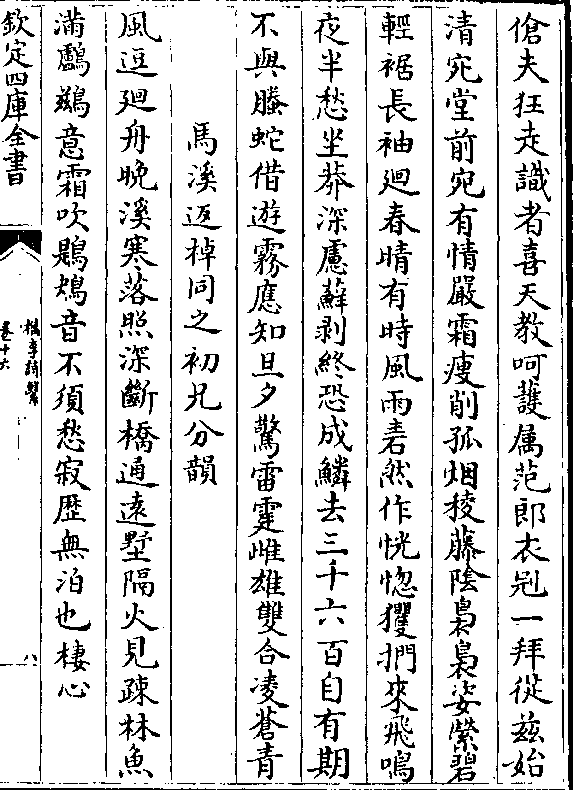 傖夫狂走識者喜天教呵䕶属范郎衣冠一拜從兹始
清宛堂前宛有情嚴霜瘦削孤烟稜藤隂裊裊姿縈碧
輕裾長袖廻春晴有時風雨砉然作恍惚玃捫來飛鳴
夜半愁坐莽深慮蘇剥終恐成鱗去三千六百自有期
不與螣蛇借遊霧應知旦夕驚雷霆雌雄雙合凌蒼青
馬溪返棹同之初兄分韻
風逗廻舟晚溪寒落照深斷橋通遠墅隔火見疎林魚
滿鸕鷀意霜吹鶗鴂音不須愁寂歴無泊也棲心
欽定四庫全書
檇李詩繫
卷十六
八